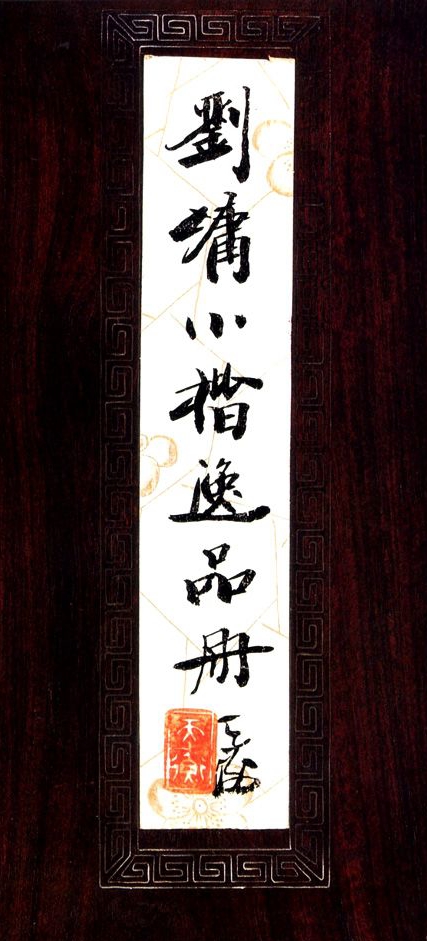 劉墉小楷逸品冊